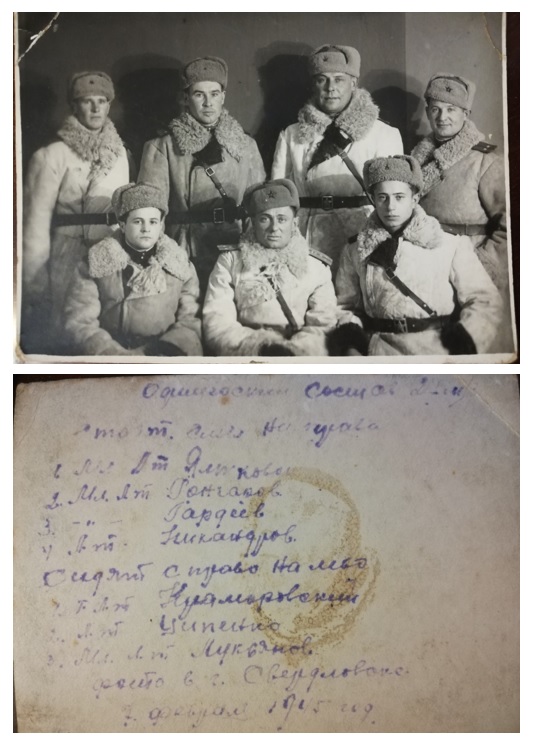 Офицерский состав
стоят. слева на право
1. Мл. Лт
2. Мл. Лт Гончаров
3. -"- Гардеев
4. Лт. Никандров.
Сидят с право на лево
Лт Крамаровский
2. Лт Ципенко
3. Мл. Лт Лукьянов.
фото в г. Свердловске
февраля 1945 год